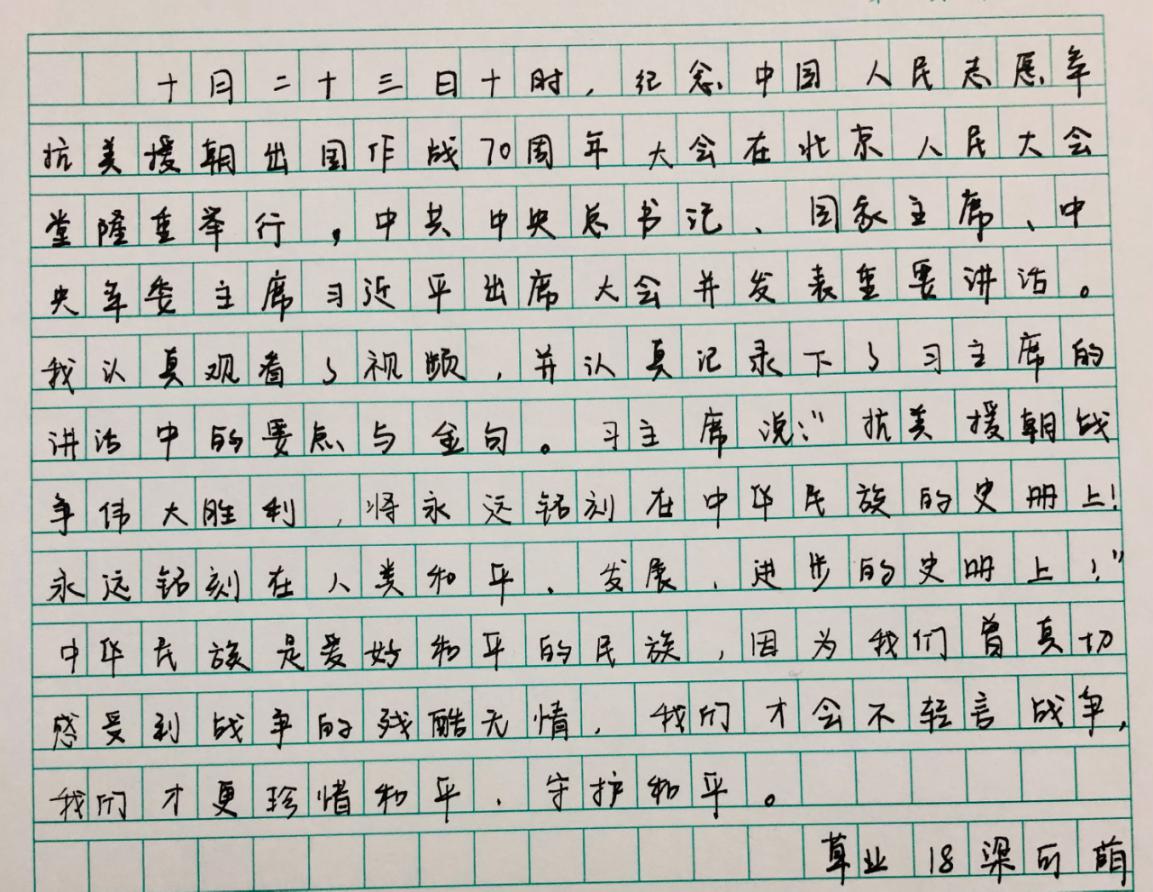 十月二十三日十时，纪念中国人民志愿军
抗美援朝出国作战70周年大会在北京人民大会
堂隆重举行，中共中央总书记、国家主席、中
央军委主席习近平出席大会并发表重要讲话。
我认真观看了视频，并认真记录下了习主席的
讲话中的要点与金句。习主席说：“抗美援朝战
争伟大胜利，将永远铭刻在中华民族的史册上！
永远铭刻在人类和平、发展、进步的史册上！”
中华民族是爱好和平的民族，因为我们曾真切
感受到战争的残酷无情，我们才会不轻言战争，
我们才更珍惜和平、守护和平。
草业18梁可萌